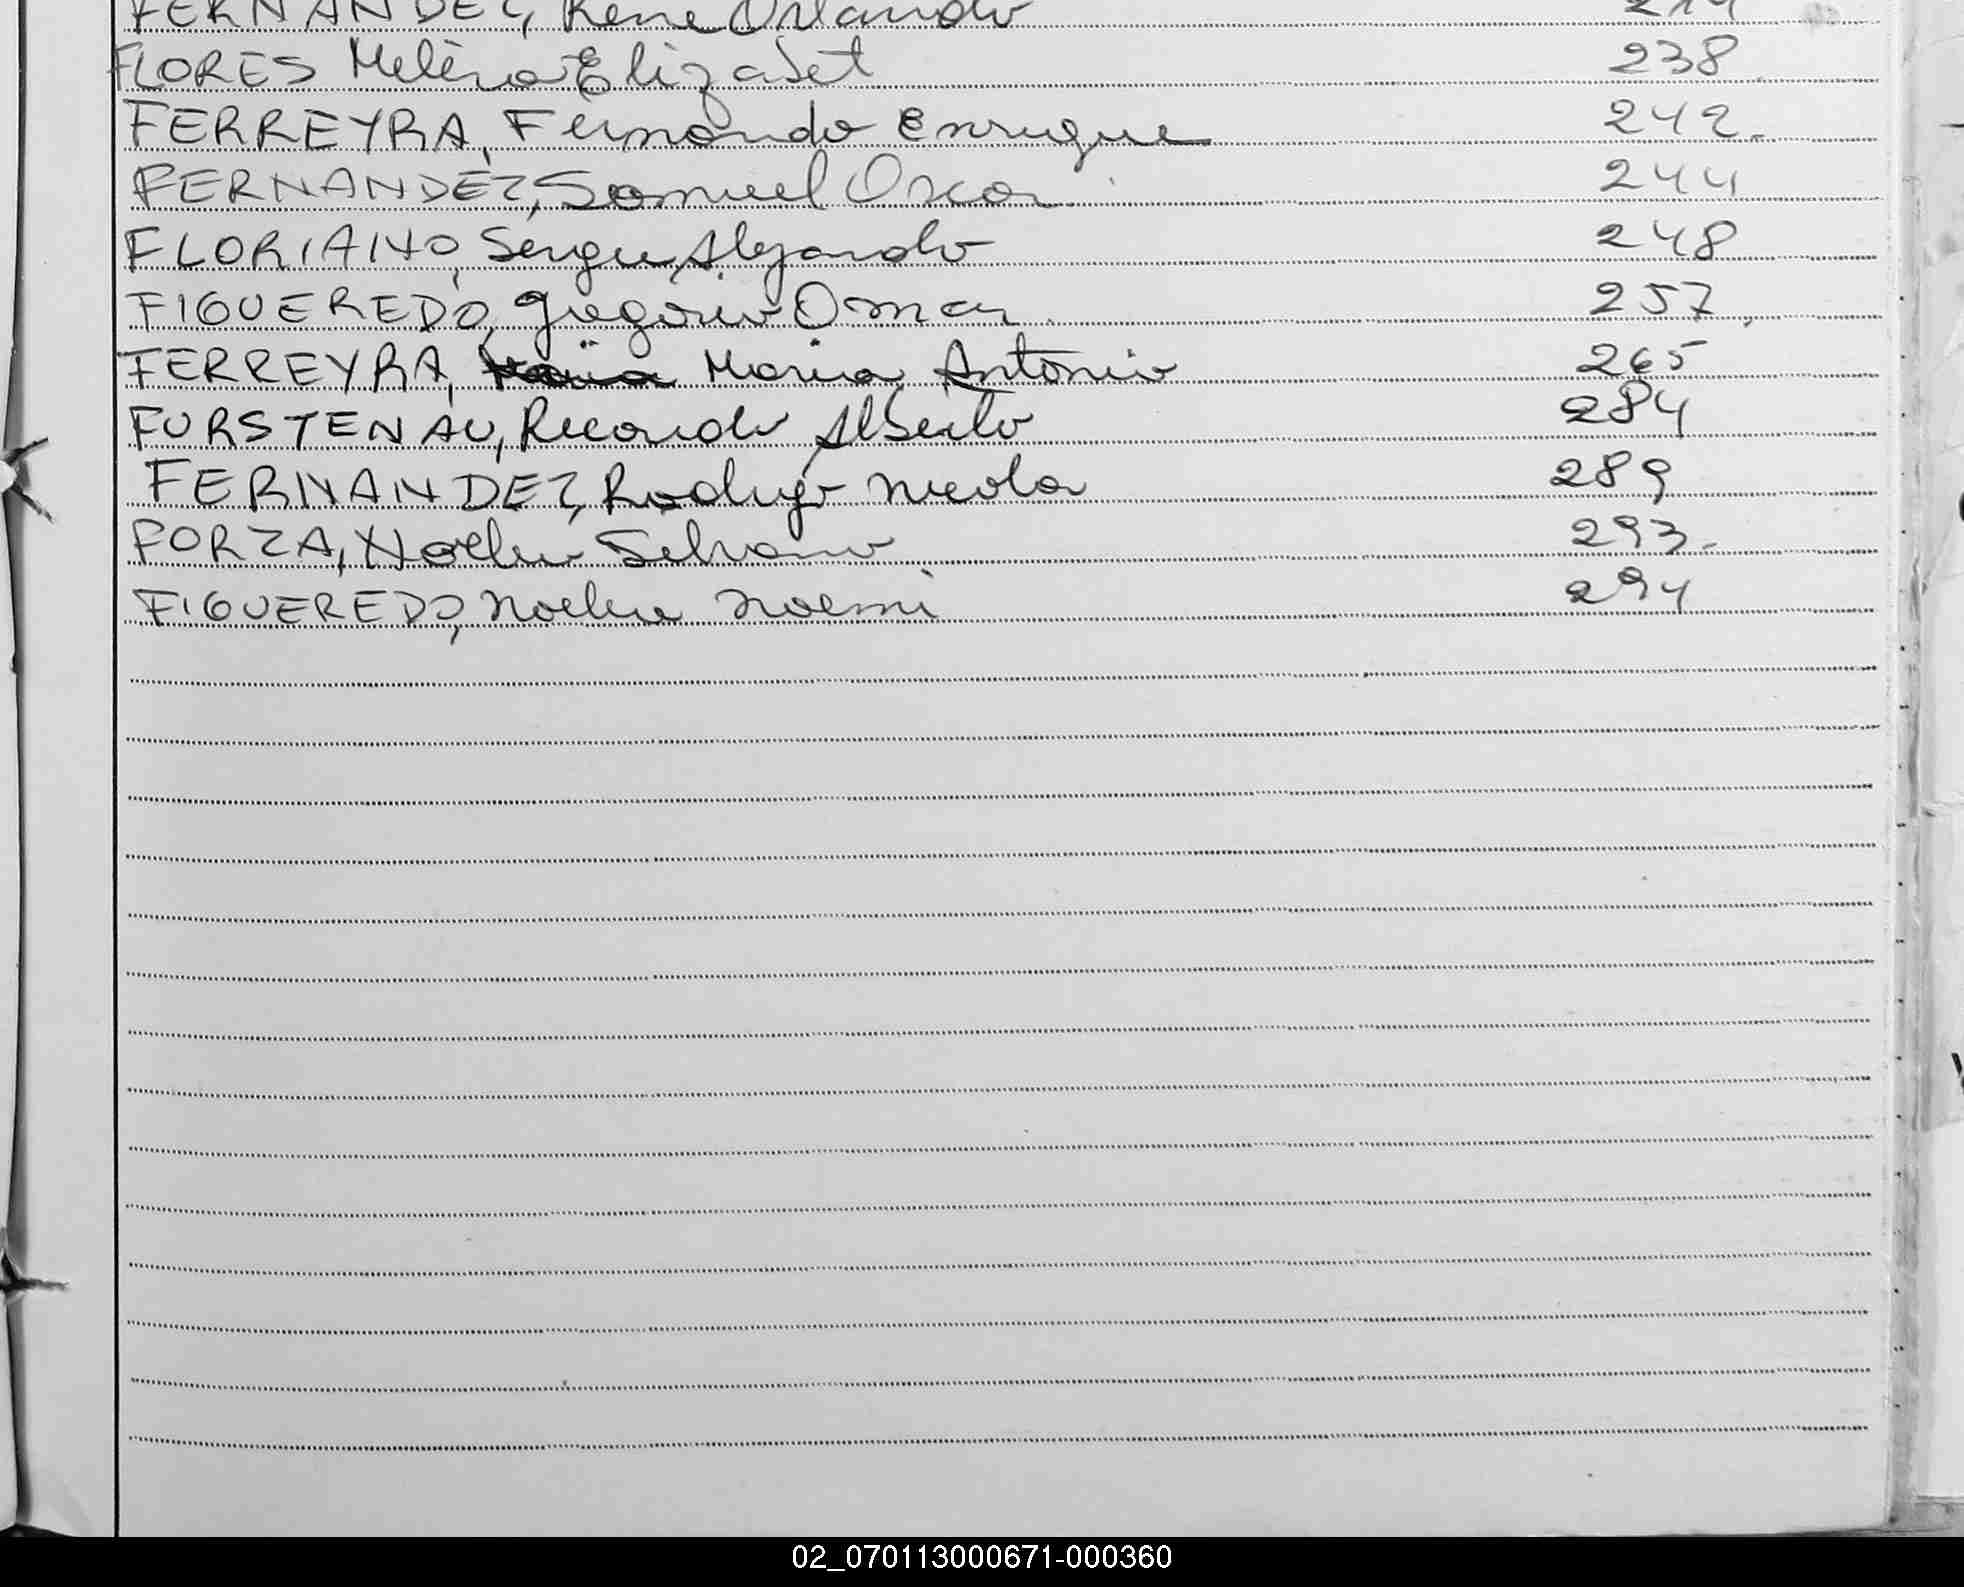 FERNANDEZ, Rene Orlando 214
FLORES Melèna Elizabet 238
FERREYRA, Fernando Enrique 242.
FERNANDEZ, Samuel Oscar 244
FLORIANO, Sergio Alejandro 248
FIGUEREDO, Gregorio Omar 257
FERREYRA, Maria Antonio 265
FURSTENAU, Ricardo Alberto 284
FERNANDEZ, Rodrigo Nicolas 289
FORZA, Noelia 293.
FIGUEREDO, Noelia Noemi 294
02_070113000671-000360